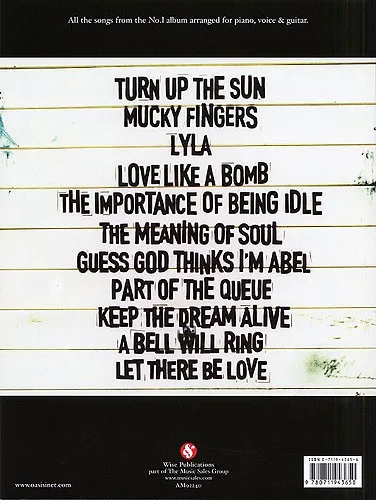 All the songs from the No.1 album arranged for piano, voice & guitar.
TURN UP THE SUN
MUCKY FINGERS
LYLA
LOVE LIKE A BOMB
THE IMPORTANCE OF BEING IDLE
THE MEANING OF SOUL
GUESS GOD THINKS I'M ABEL
PART OF THE QUEUE
KEEP THE DREAM ALIVE
A BELL WILL RING
LET THERE BE LOVE
Wise Publications
part of The Music Sales Group
www.musicsales.com
AM92240
www.oasisinet.com
ISBN 0-7119-4365-6
9 780711 943650